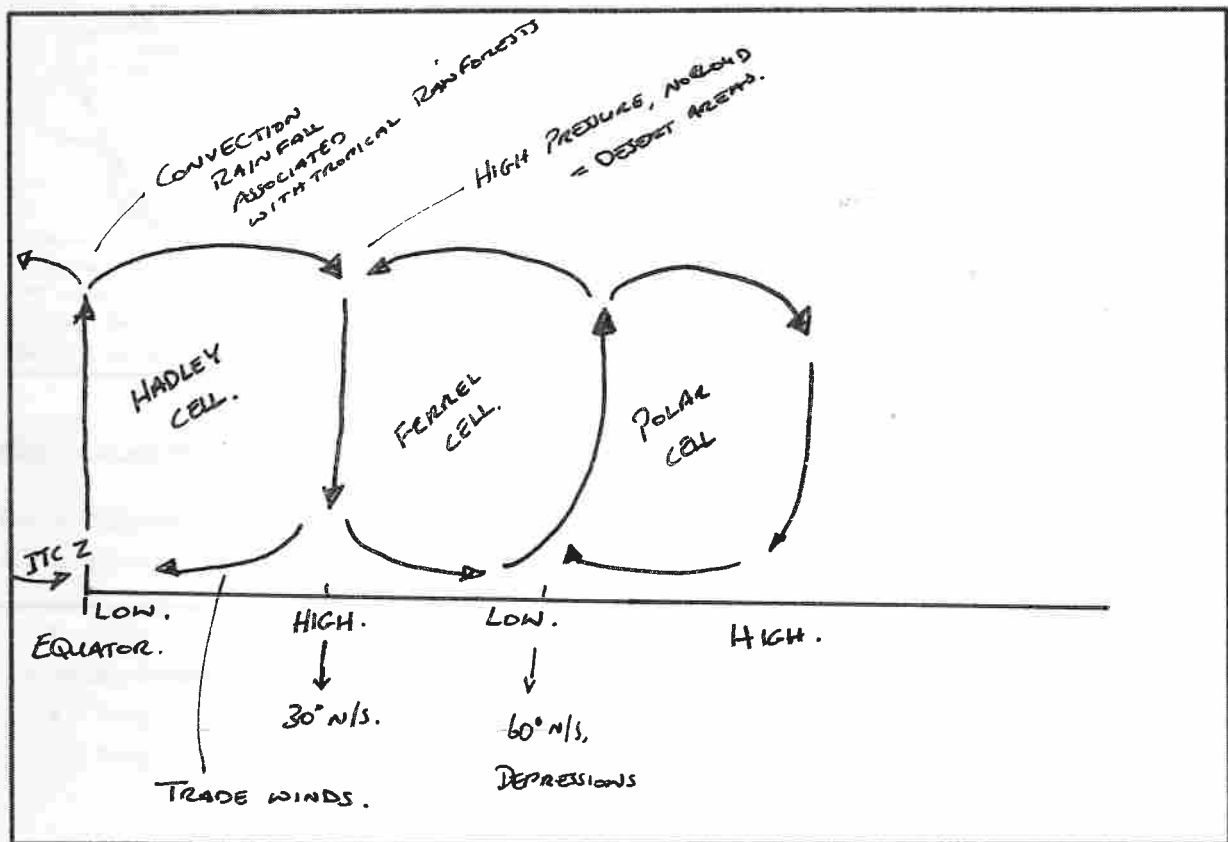 CONVECTION
RAINFALL
ASSOCIATED
WITH TROPICAL RAINFORESTS
HIGH PRESSURE, NO CLOUD
= DESERT AREAS.
HADLEY
CELL.
FERREL
CELL.
POLAR
CELL
ITCZ
LOW.
EQUATOR.
HIGH.
30° N/S.
LOW.
60° N/S.
DEPRESSIONS
HIGH.
TRADE WINDS.